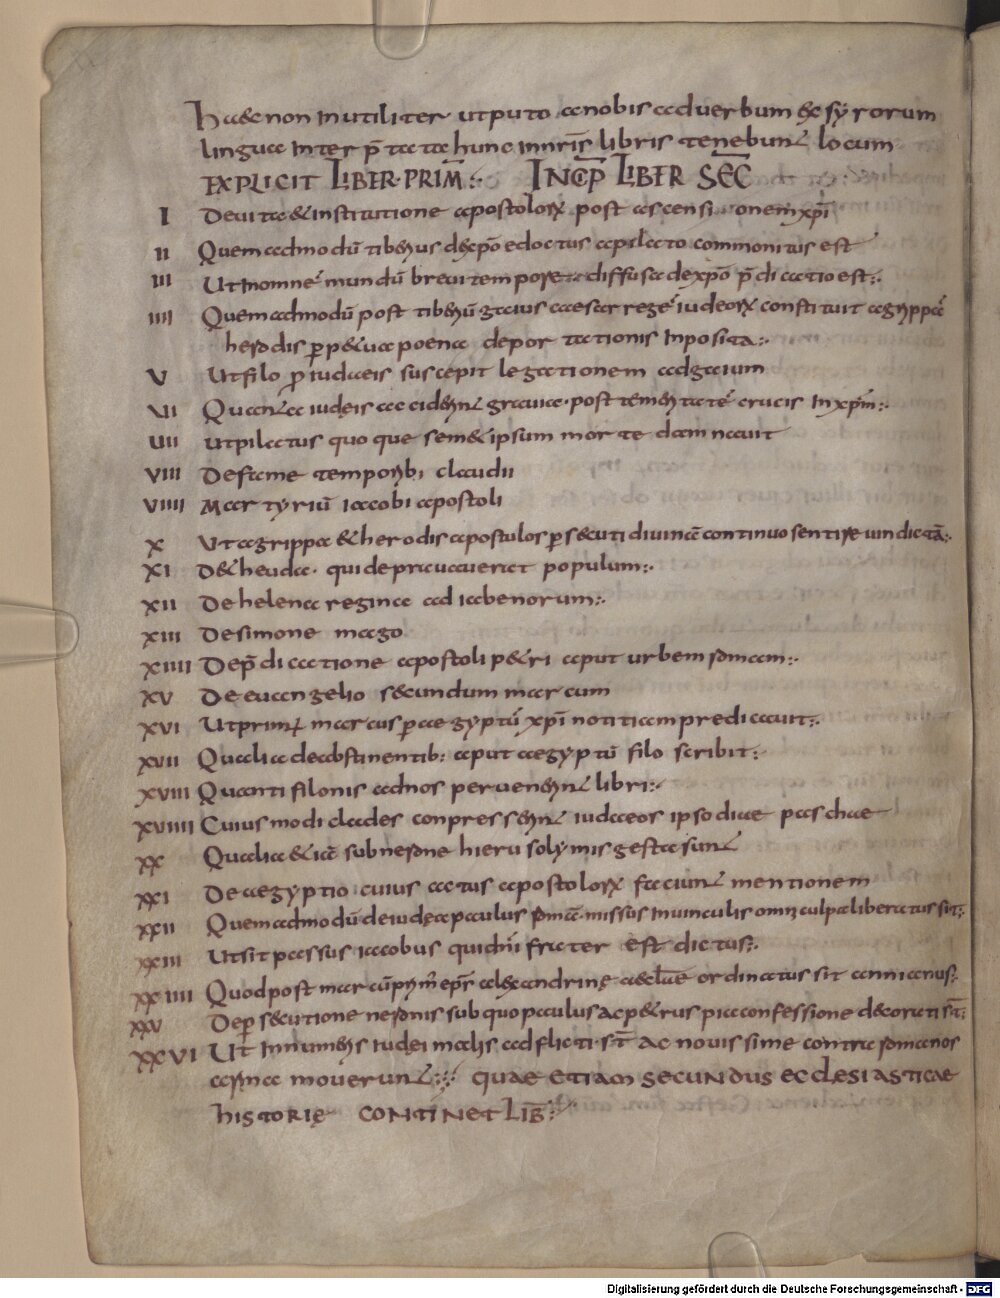 Haec non inutiliter ut puto a nobis ad uerbum ex syrorum
lingua interp̄tata hunc innr̄is libris tenebunt locum
EXPLICIT LIBER·PRIM̄:· INCP̄ LIBER SEC̄
I De uita & institutione apostolorꝝ post ascensionem xp̄i
II Quemadmodū tiberius de xp̄o edoctus a pilato commonitus est
III Ut in omnē mundū breui tempore diffusa de xp̄o p̄dicatio est:·
IIII Quemadmodū post tiberiū gaius caesar regē iudeorꝝ constituit agrippā
herodis ꝑp&ua poena deportationis inposita:·
V Ut filo ꝓ iudaeis suscepit legationem ad gaium
VI Quanta iudeis acciderint grauia· post temeritatē crucis in xp̄m:·
VII Ut pilatus quoque sem&ipsum morte damnauit
VIII De fame temporib; claudii
VIIII Martyriū iacobi apostoli
X Ut agrippa & herodis apostolos ꝑsecuti diuinā continuo sentire uindictā:·
XI De theuda· qui depraeuauerat populum:·
XII De helena regina adiabenorum:·
XIII De simone mago
XIIII De p̄dicatione apostoli p&ri aput urbem romam:·
XV De euangelio secundum marcum
XVI Ut primꝰ marcus ꝑ aegyptū xp̄i notitiam predicauit:·
XVII Qualia de abstinentib; aput aegyptū filo scribit:·
XVIII Quanti filonis ad nos peruenerint libri:·
XVIIII Cuius modi clades conpresserint iudaeos ipso diae paschae
XX Qualia &iā sub nerone hierusolymis gesta sunt
XXI De aegyptio cuius actus apostolorꝝ faciunt mentionem
XXII Quemadmodū de iudęa paulus romā· missus in uinculis omni culpa liberatus sit:·
XXIII Ut sit passus iacobus qui dn̄i frater est dictus:·
XXIIII Quod post marcū primū epr̄ alexandrinę aeclae ordinatus sit annianus:·
XXV De ꝑsecutione neronis sub quo paulus ac p&rus pia confessione decorati st̄:
XXVI Ut innumeris iudei malis adflicti· st̄ ac nouissime contra romanos
arma mouerunt:· quae etiam secundus ecclesiasticae
historię continet LIB̄:·
Digitalisierung gefördert durch die Deutsche Forschungsgemeinschaft - DFG